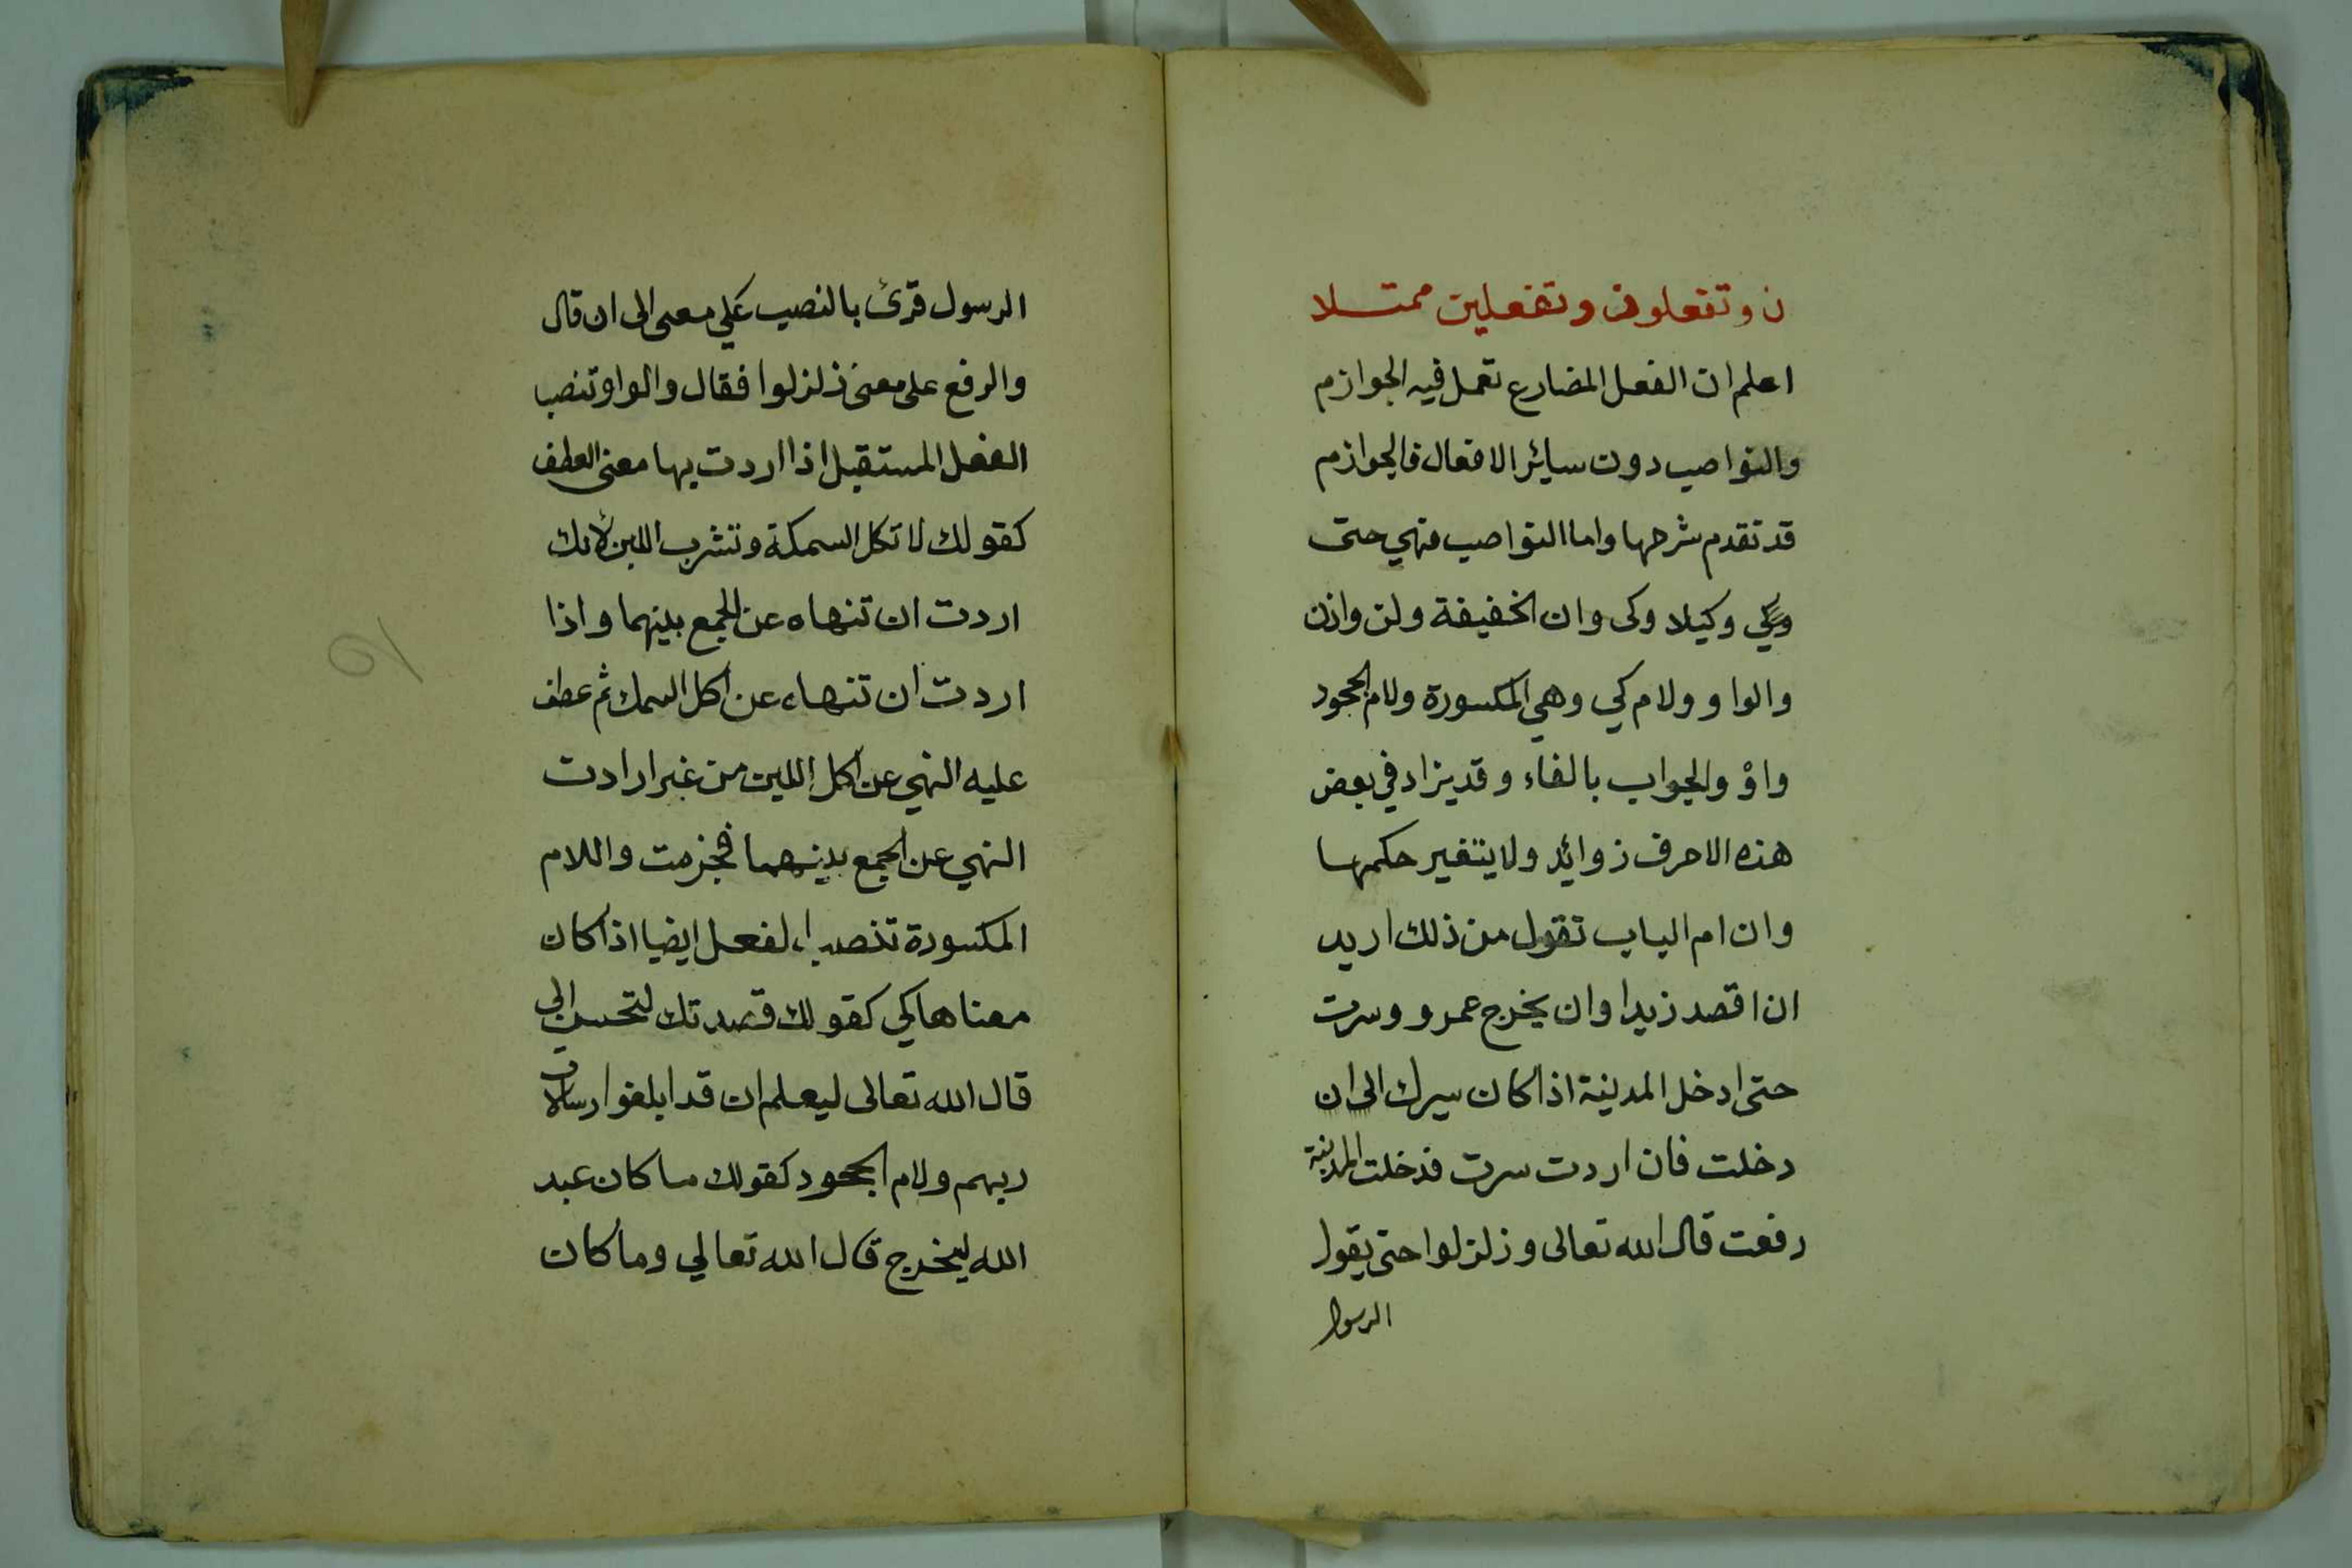 ن وتفعلون وتفعلين ممتلا
اعلم ان الفعل المضارع تعمل فيه الجوازم
والنواصب دون سائر الافعال فالجوازم
قد تقدم شرحها واما النواصب فهي حتى
وكي وكيلا وكى وان الخفيفة ولن واذن
والواو ولام كي وهي المكسورة ولام الجحود
واوْ والجواب بالفاء وقد يزاد في بعض
هذه الاحرف زوائد ولا يتغير حكمها
وان ام الباب تقول من ذلك اريد
ان اقصد زيدا وان يخرج عمرو وسرت
حتى ادخل المدينة اذا كان سيرك الى ان
دخلت فان اردت سرت فدخلت المدينة
رفعت قال الله تعالى وزلزلوا حتى يقول
الرسول
الرسول قرئ بالنصب على معى الى ان قال
والرفع على معنى زلزلوا فقال والواو تنصب
الفعل المستقبل اذا اردت بها معنى العطف
كقولك لا تكل السمكة وتشرب اللبن لانك
اردت ان تنهاه عن الجمع بينهما واذا
اردت ان تنهاه عن اكل السمك ثم عطف
عليه النهي عن اكل اللبن من غير ارادت
النهي عن الجمع بينهما فجزمت واللام
المكسورة تنصب الفعل ايضا اذا كان
معناها كي كقولك قصدتك لتحسن الي
قال الله تعالى ليعلم ان قد ابلغوا رسالات
ربهم ولام الجحود كقولك ما كان عبد
الله ليخرج قال الله تعالي وما كان
١٥